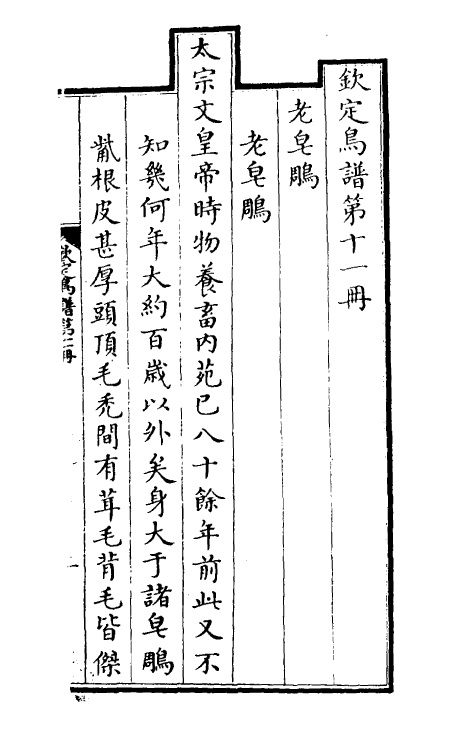 欽定鳥譜第十一冊
老皂鵰
老皂鵰
太宗文皇帝時物養畜內苑已八十餘年前此又不
知幾何年大約百歳以外矣身大于諸皂鵰
觜根皮甚厚頭頂毛禿間有茸毛背毛皆傑
欽定鳥譜第十一冊